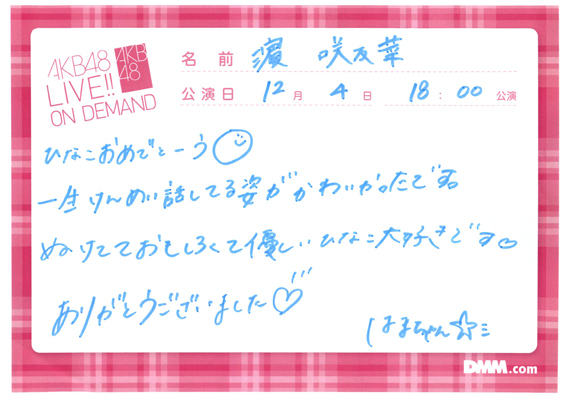 AKB48
LIVE!!
ON DEMAND
AKB
48
名前 濵 咲友菜
公演日 12月 4日 18:00 公演
ひなこおめでとーう
一生けんめい話してる姿がかわいかったです。
ぬけてておもしろくて優しいひなこ大好きです♡
ありがとうございました♡
はまちゃん☆ミ
DMM.com